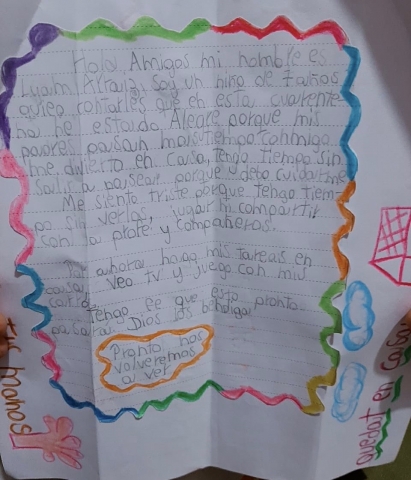 Hola Amigos mi nombre es
soy un niño de 7 años
quiero contarles que en esta cuarente
na he estado Alegre porque mis
padres pasan mas tiempo conmigo
me divierto en casa, tengo tiempo sin
salir a pasear porque debo cuidarme
Me siento triste porque tengo tiem
po sin verlos, jugar ni compartir
con la profe y compañeros.
Por ahora hago mis tareas en
casa, Veo tv y juego con mis
Tengo fe que esto pronto
pasara. Dios los bendiga!
Pronto nos
volveremos
a ver
manos
quedat en casa